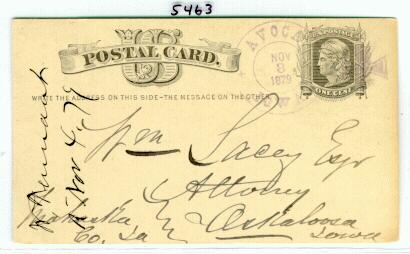 5463
US
POSTAL CARD.
WRITE THE ADDRESS ON THIS SIDE - THE MESSAGE ON THE OTHER
AVOCA
NOV
8
1879
U.S. POSTAGE
ONE CENT
Wm Lacey Esqr
Attorney
Oskaloosa
Iowa
Mahaska
Co. Ia
Nov 4, 79